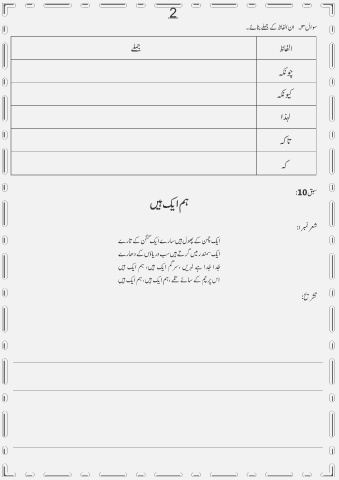 2
سوال ۳۔ ان الفاظ کے جملے بنائیے۔
الفاظ جملے
چونکہ
کیونکہ
لہٰذا
تاکہ
کہ
سبق 10:
ہم ایک ہیں
شعر نمبر ۱:
ایک چمن کے پھول ہیں سارے ایک گگن کے تارے
ایک سمندر میں گرتے ہیں سب دریاؤں کے دھارے
جدا جدا ہے لہریں، سرگم ایک ہیں، ہم ایک ہیں
اس پرچم کے سائے تلے ،ہم ایک ہیں، ہم ایک ہیں
تشریح: